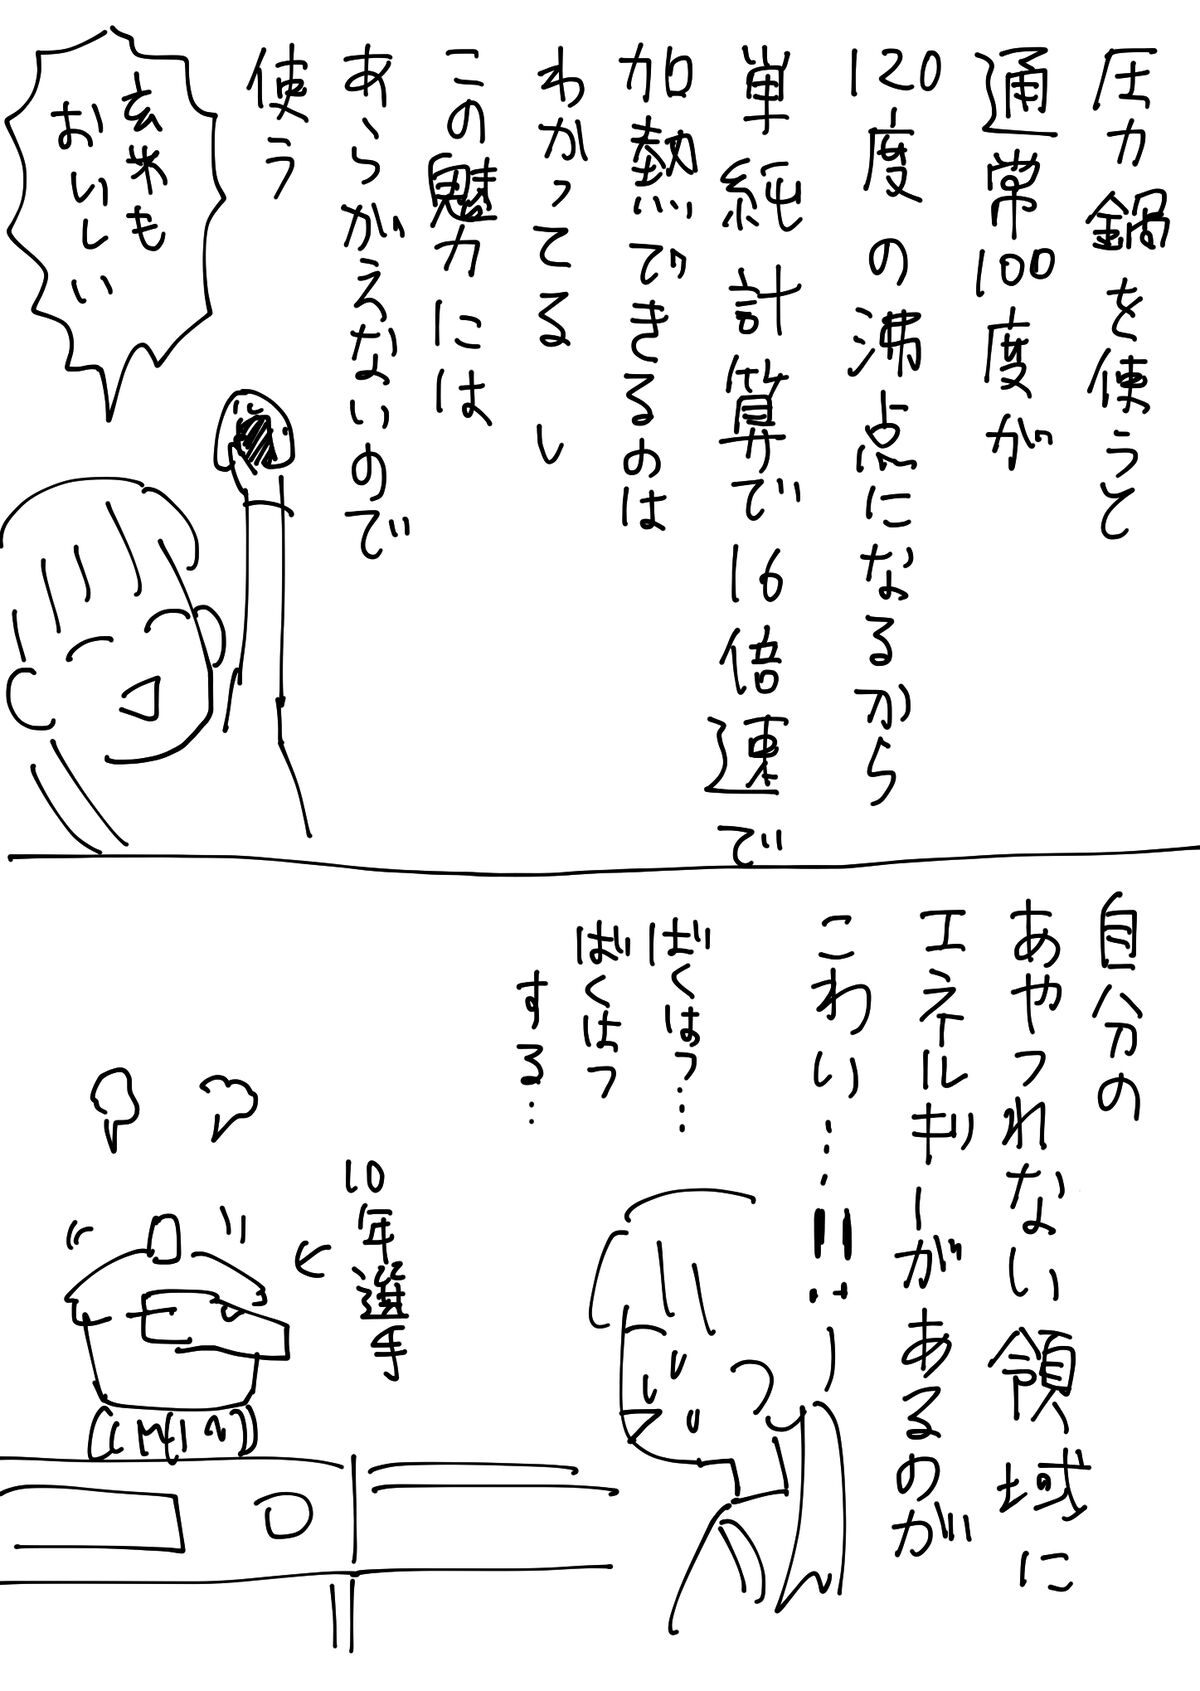 圧力鍋を使うと
通常100度が
120度の沸点になるから
単純計算で16倍速で
加熱できるのは
わかってるし
この魅力には
あらがえないので
使う
玄米も
おいしい
自分の
あやつれない領域に
エネルギーがあるのが
こわい…!!
ばくはつ…
ばくはつ
する…
10年選手